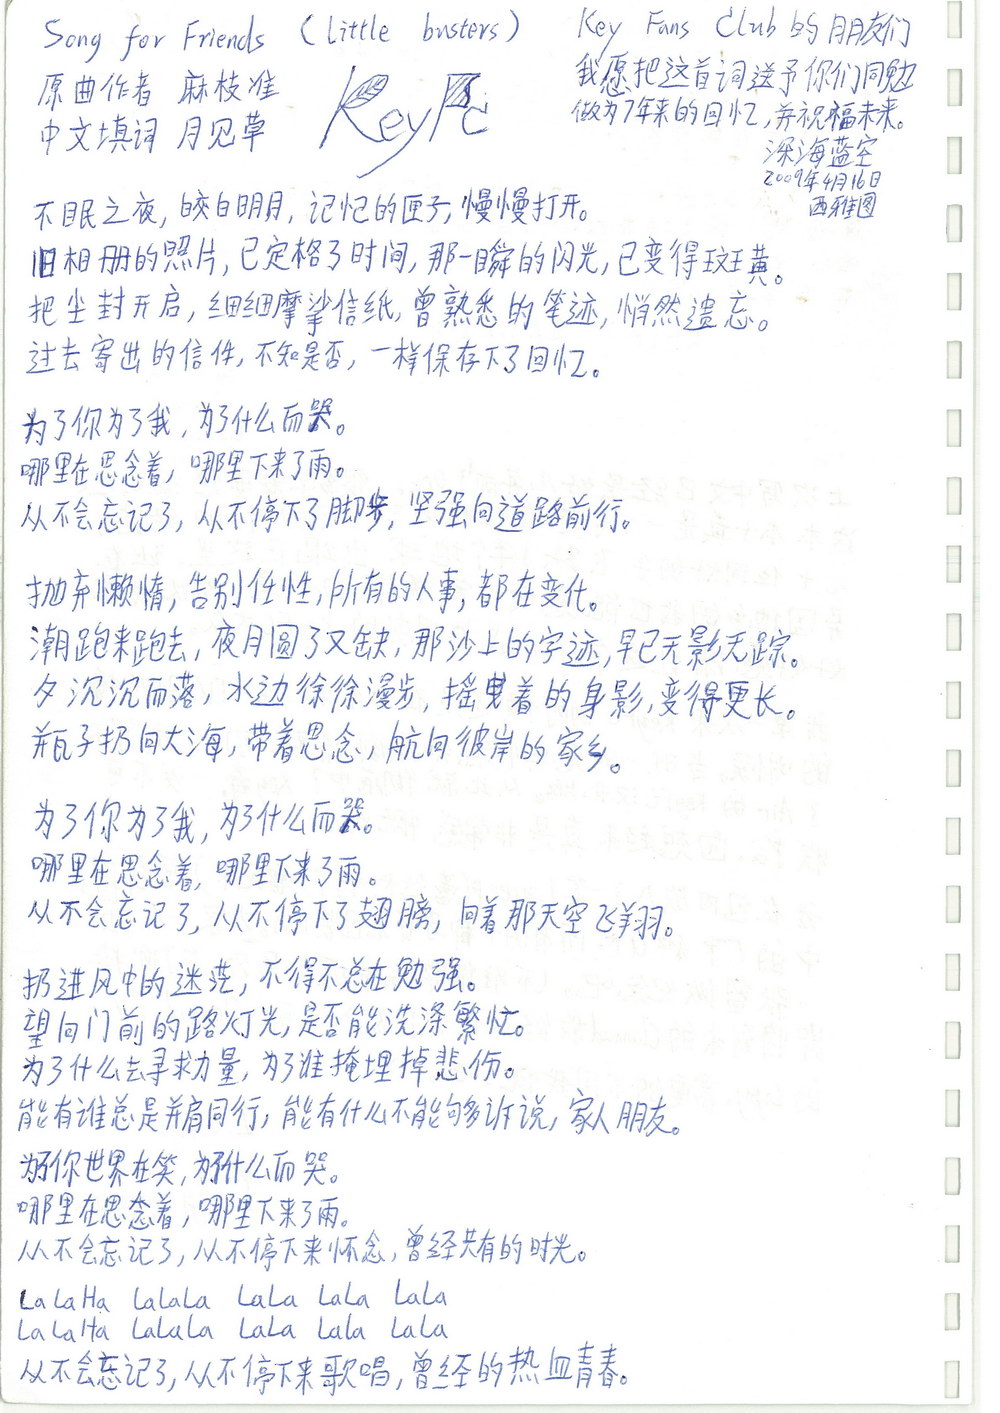 Song for Friends (Little busters)
原曲作者 麻枝准
中文填词 月见草
KeyFc
Key Fans Club的朋友们
我愿把这首词送予你们同勉
做为7年来的回忆,并祝福未来。
深海蓝空
2009年4月16日
西雅图
不眠之夜,皎白明月,记忆的匣子,慢慢打开。
旧相册的照片,已定格了时间,那一瞬的闪光,已变得斑黄。
把尘封开启,细细摩挲信纸,曾熟悉的笔迹,悄然遗忘。
过去寄出的信件,不知是否,一样保存下了回忆。
为了你为了我,为了什么而哭。
哪里在思念着,哪里下来了雨。
从不会忘记了,从不停下了脚步,坚强向道路前行。
抛弃懒惰,告别任性,所有的人事,都在变化。
潮跑来跑去,夜月圆了又缺,那沙上的字迹,早已无影无踪。
夕沉沉而落,水边徐徐漫步,摇曳着的身影,变得更长。
将瓶子扔向大海,带着思念,航向彼岸的家乡。
为了你为了我,为了什么而哭。
哪里在思念着,哪里下来了雨。
从不会忘记了,从不停下了翅膀,向着那天空飞翔。
扔进风中的迷茫,不得不总在勉强。
望向门前的路灯光,是否能洗涤繁忙。
为了什么去寻求力量,为了谁掩埋掉悲伤。
能有谁总是并肩同行,能有什么不能够多诉说,家人朋友。
为了你世界在笑,为了什么而哭。
哪里在思念着,哪里下来了雨。
从不会忘记了,从不停下来怀念,曾经共有的时光。
LaLaHa LaLaLa LaLa LaLa LaLa
LaLaHa LaLaLa LaLa LaLa LaLa
从不会忘记了,从不停下来歌唱,曾经的热血青春。